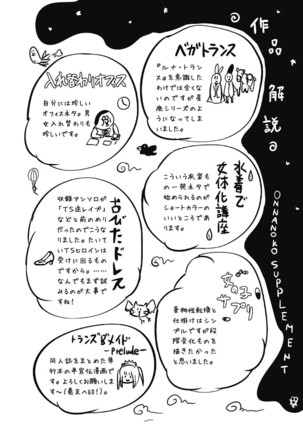 作品解説
ONNANOKO SUPPLEMENT
ベガトランス
『ルナ・トラン
ス』を意識した
わけでは全く
ないのですが星
座シリーズのよ
うになってしま
いました。
入れ替わりオフィス
自分には珍しい
オフィスネタ。男
女入れ替わりも
珍しいです。
水着で
女体化講座
こういう水着も
の一発ネタで
始められるのが
ショートカラーの
いいところであ
ります。
ちびたドレス
収録アンソロが
「TS逆レイプ」
などと前のめり
だったのでこうな
りました。たいて
いTSヒロインは
受けに回るもの
ですから。……
なんでもまず試
みるのが大事で
すね!
女の子サプリ
薬物性転換と
仕掛けはシン
プルですが段
階変化ものを
描きたかった
と思いました。
トランズ♂メイド
-Prelude-
同人誌をまとめた単
行本の半宣伝漫画で
す。よろしくお願いしま
す〜(巻末へGO!)。